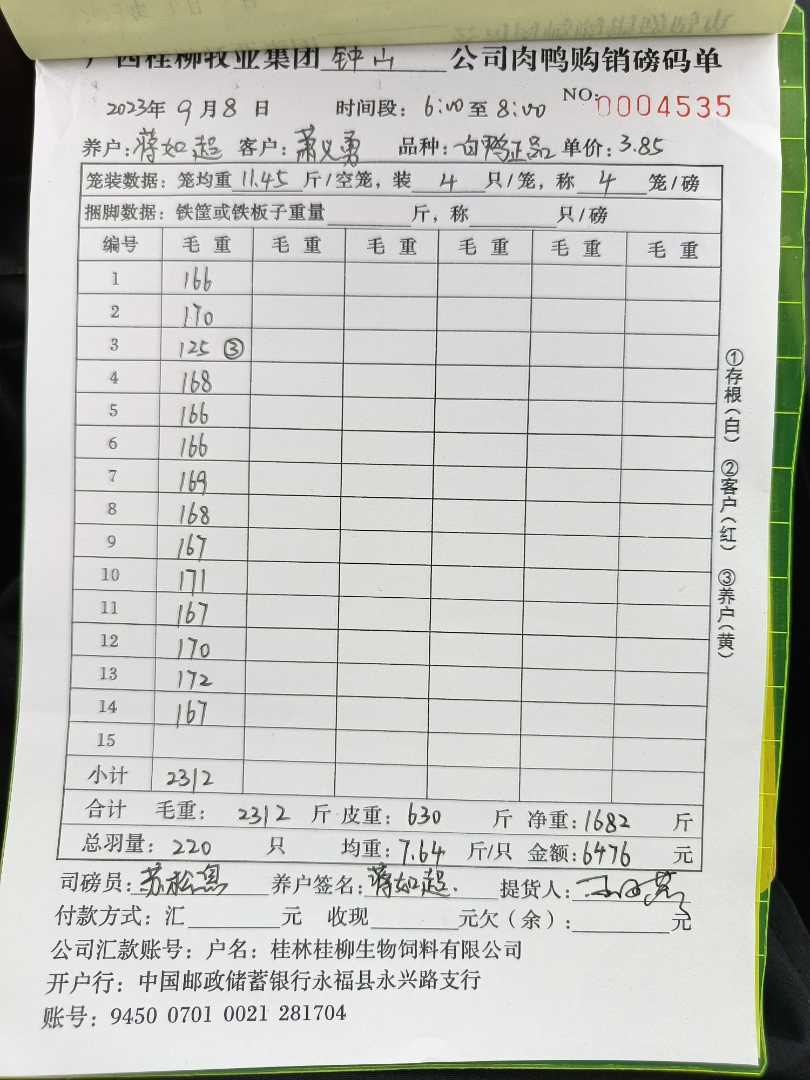 广西桂柳牧业集团钟山公司肉鸭购销磅码单
2023年9月8日 时间段：6:00至8:00 NO:0004535
养户：蒋如超 客户：萧义勇 品种：白鸭正品 单价：3.85
笼装数据：笼均重11.45斤/空笼，装4只/笼，称4笼/磅
捆脚数据：铁筐或铁板子重量____斤，称____只/磅
编号 毛重 毛重 毛重 毛重 毛重 毛重
1 166
2 170
3 125 ③
4 168
5 166
6 166
7 169
8 168
9 167
10 171
11 167
12 170
13 172
14 167
15
小计 2312
合计 毛重：2312斤 皮重：630斤 净重：1682斤
总羽量：220只 均重：7.64斤/只 金额：6476元
司磅员：苏松 养户签名：蒋如超. 提货人：
付款方式：汇____元 收现____元欠（余）：____元
公司汇款账号：户名：桂林桂柳生物饲料有限公司
开户行：中国邮政储蓄银行永福县永兴路支行
账号：9450 0701 0021 281704
①存根（白） ②客户（红） ③养户（黄）